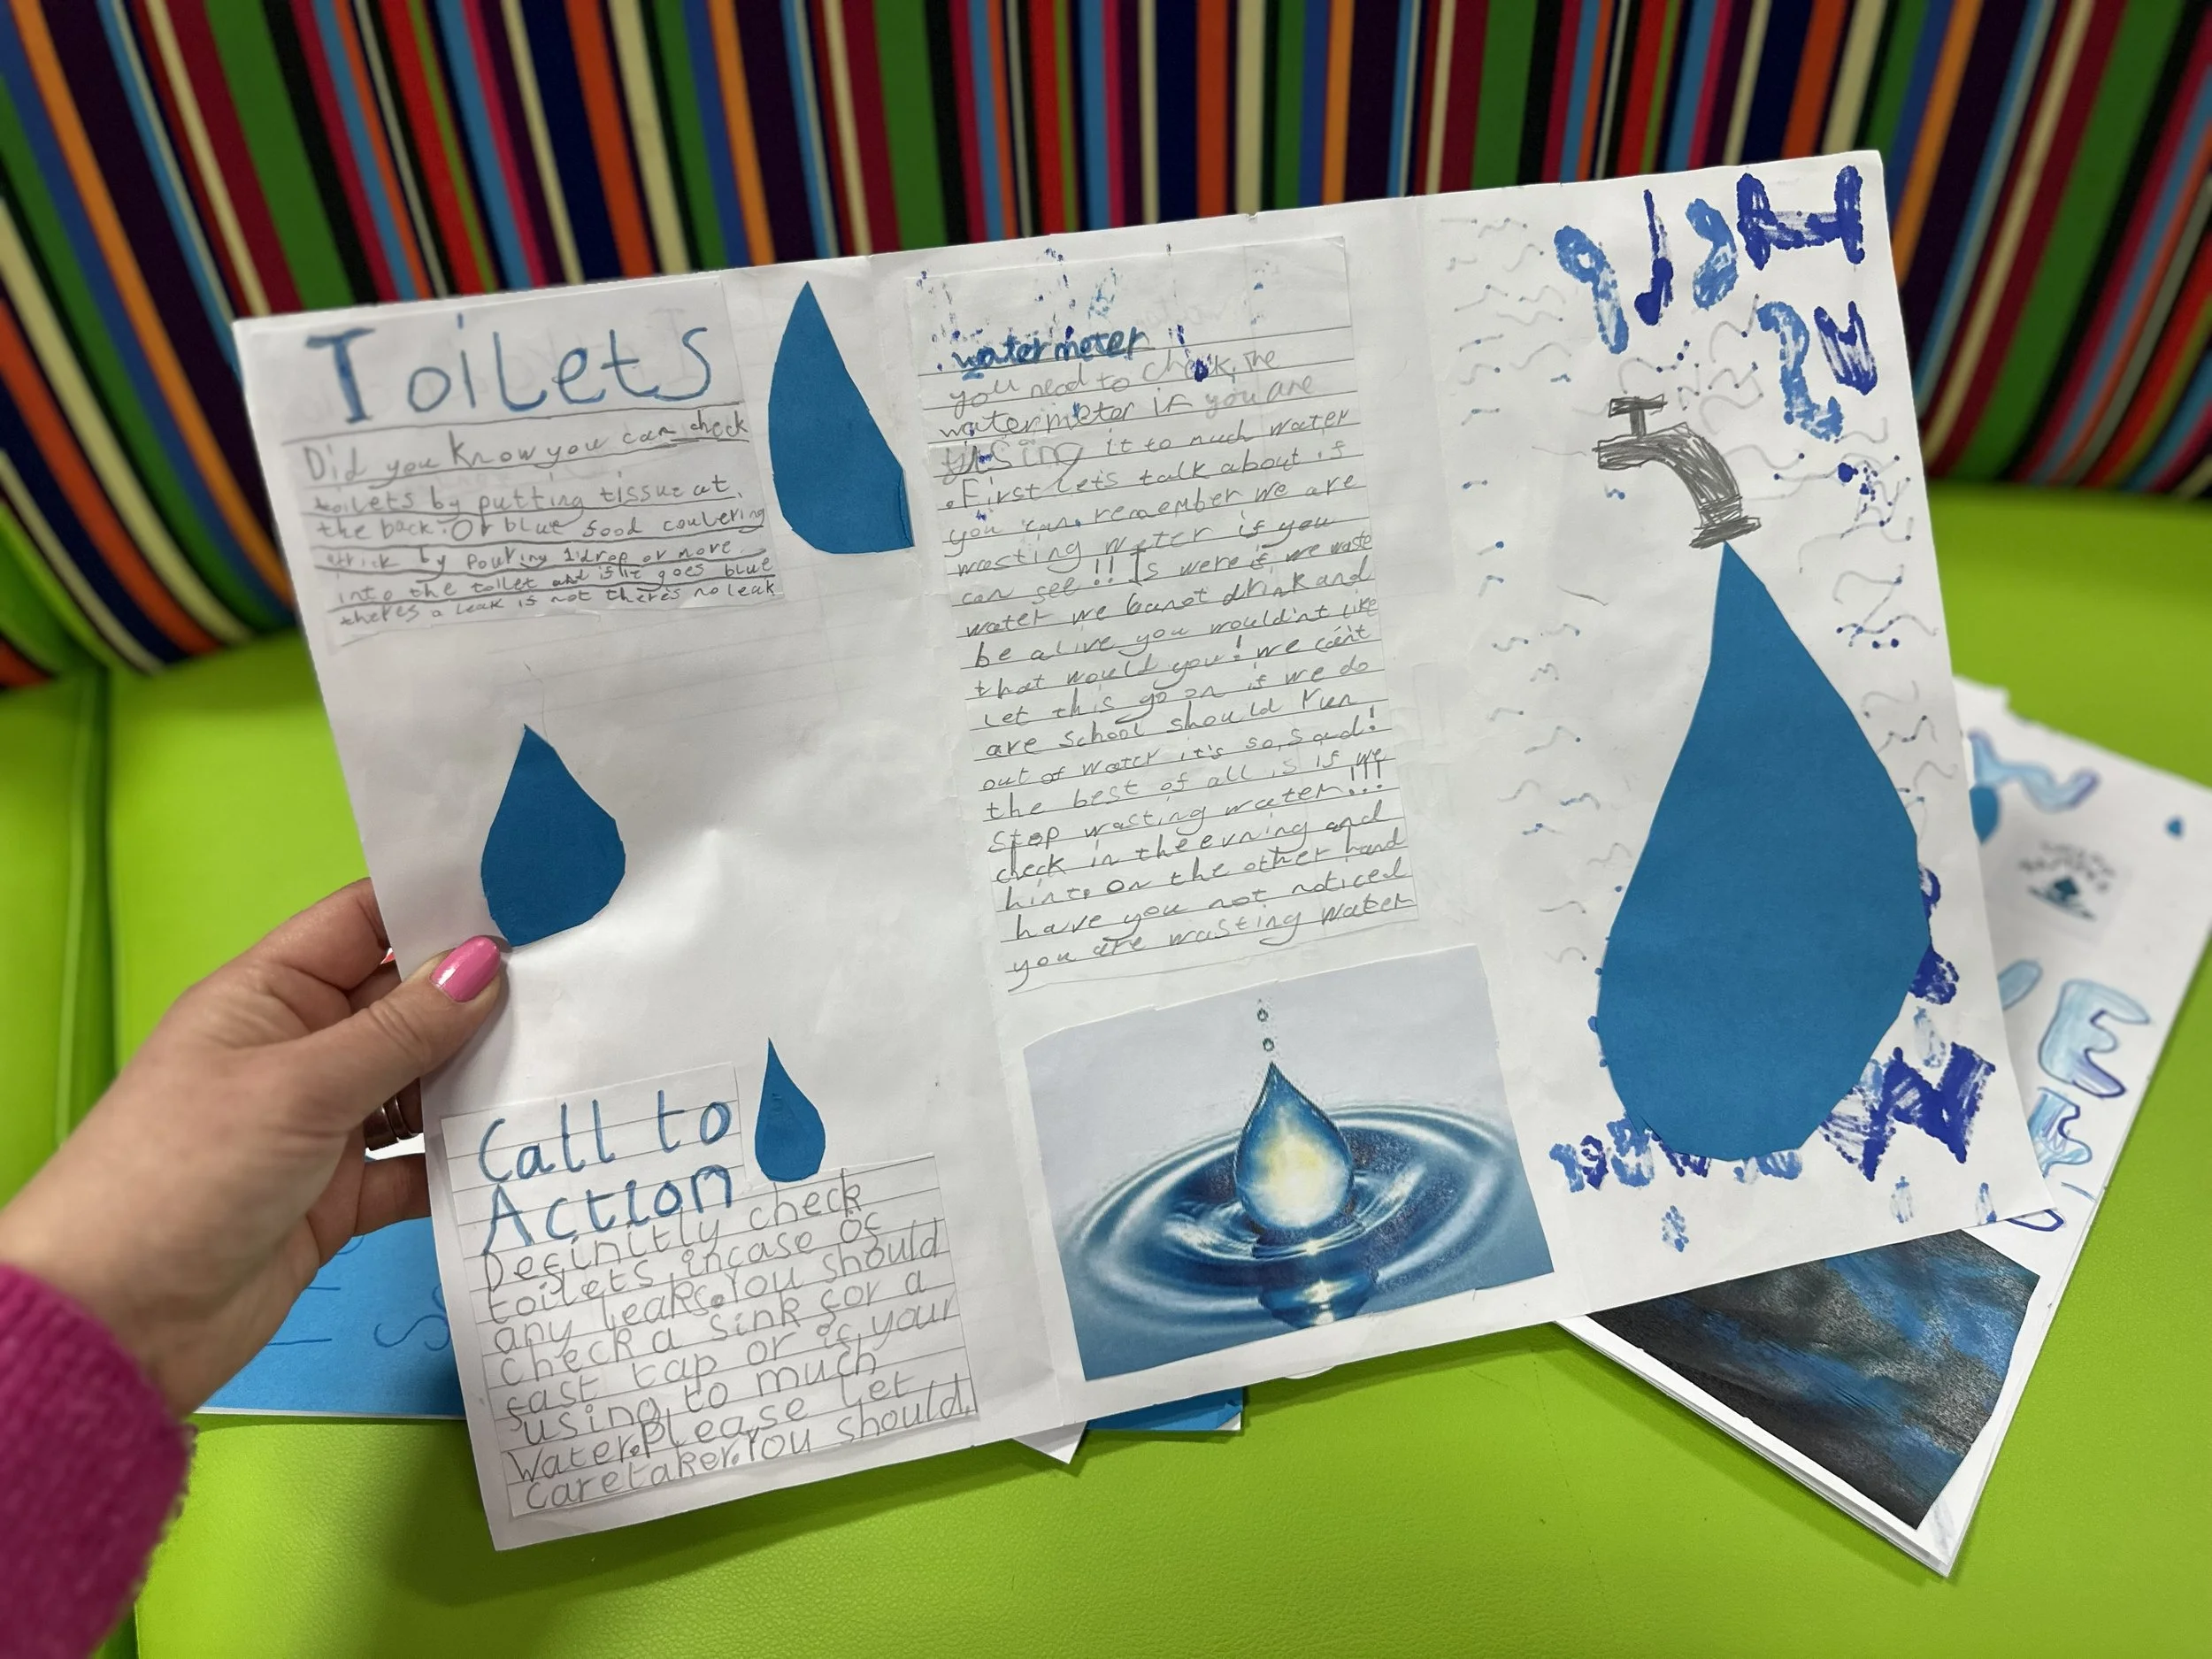 Toilets
Did you know you can check
toilets by putting tissue at
the back. Or blue food coulering
trick by pouring 1 drop or more
into the toilet and if it goes blue
theres a leak is not theres no leak
Call to
Action
Definitly check
toilets incase of
any leaks. You should
check a sink for a
fast tap or if your
using to much
Water. Please let
caretaker. You should,
water meter
you need to check, the
watermeter if you are
using it to much water
. First lets talk about if
you can. remember we are
wasting water if you
can see!! Is were if we waste
water we canot drink and
be alive you wouldin't like
that would you! we can't
Let this go on if we do
are school should run
out of water it's so, sad!
the best of all is if we
stop wasting water!!!
check in the evning and
hint. On the other hand
have you not noticed
you are wasting water
Help
us